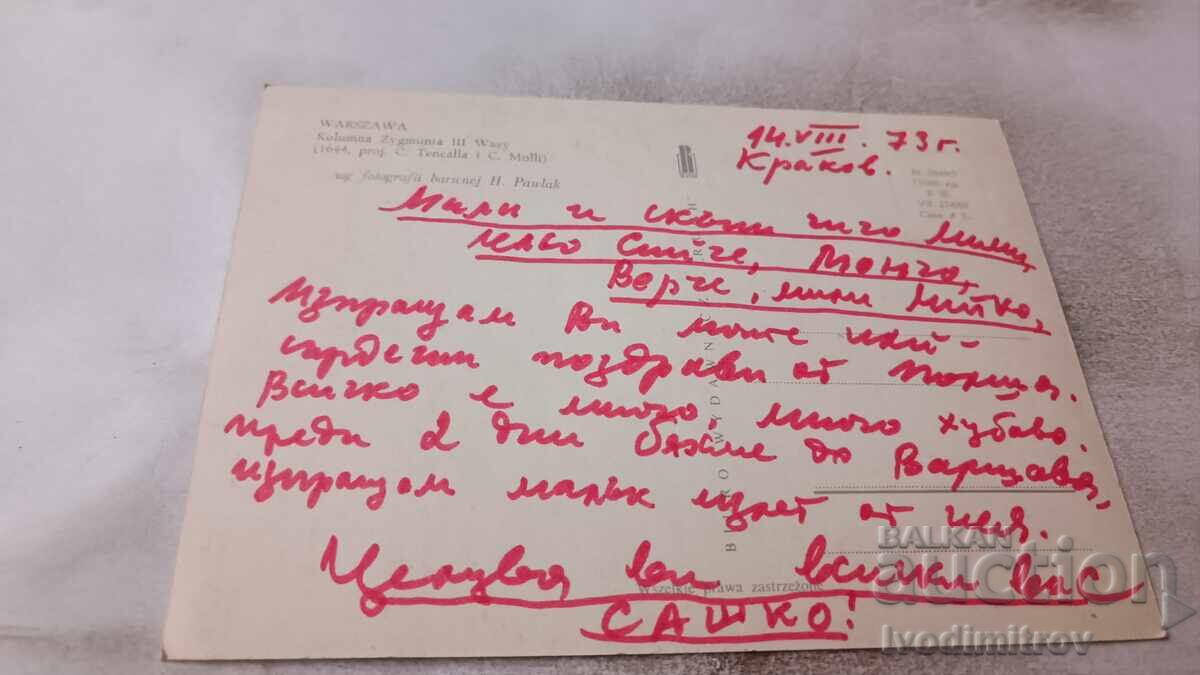 WARSZAWA
Kolumna Zygmunta III Wazy
(1644, proj. C. Tencalla i C. Molli)
wg fotografii barwnej H. Pawlak
14.VIII. 73 г.
Краков.
Мили и скъпи чичо Мими,
лельо Сийче, Монча,
Верче, мили Митко,
Изпращам Ви моите най-
сърдечни поздрави от Полша.
Всичко е много, много хубаво.
Преди 2 дни бяхме до Варшава,
изпращам малък изглед от нея.
Целува ви всички вас
САШКО!
BIURO WYDAWNICZ
Wszelkie prawa zastrzeżone
BALKAN
auction
Ivodimitrov